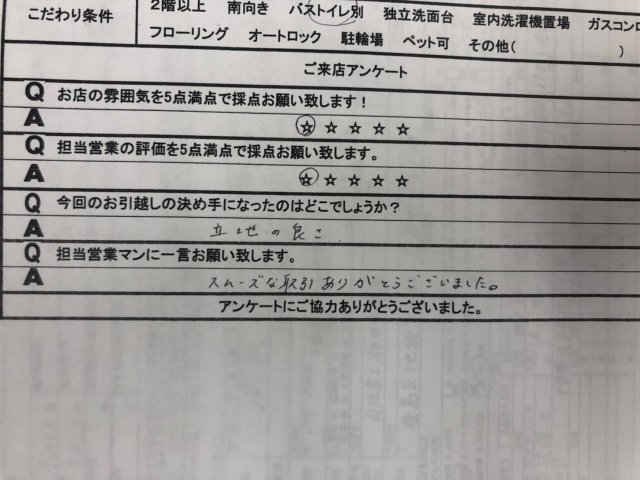 こだわり条件
2階以上 南向き バストイレ別 独立洗面台 室内洗濯機置場 ガスコンロ
フローリング オートロック 駐輪場 ペット可 その他( )
ご来店アンケート
Q お店の雰囲気を5点満点で採点お願い致します!
A ☆ ☆ ☆ ☆ ☆
Q 担当営業の評価を5点満点で採点お願い致します。
A ☆ ☆ ☆ ☆ ☆
Q 今回のお引越しの決め手になったのはどこでしょうか?
A 立地の良さ
Q 担当営業マンに一言お願い致します。
A スムーズな取引ありがとうございました。
アンケートにご協力ありがとうございました。